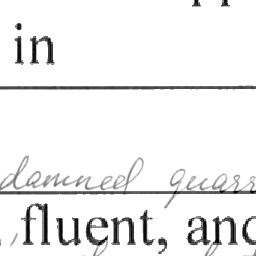 in
damned quarr
fluent, and